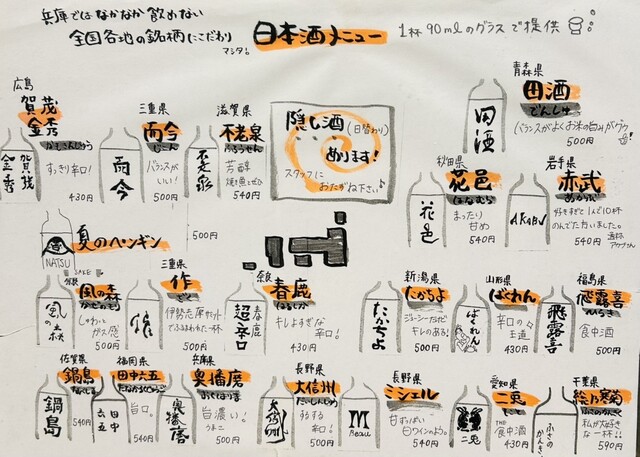 兵庫ではなかなか飲めない
全国各地の銘柄にこだわりマシタ!
日本酒メニュー
1杯90mlのグラスで提供
広島
賀茂
金秀
かもきんしゅう
すっきり辛口!
430円
賀茂
金秀
三重県
而今
じこん
バランスが
いい!
500円
而今
滋賀県
不老泉
ふろうせん
芳醇
540円
不老泉
隠し酒(日替わり)
あります!
スタッフに
おたずね下さい♪
青森県
田酒
でんしゅ
バランスがよくお米の旨みがグッ!
500円
田酒
秋田県
花邑
はなむら
まったり
甘め
540円
花邑
岩手県
赤武
あかぶ
540円
AKABU
夏のペンギン
500円
NATSU
SAKE
風の森
かぜのもり
しゅわっ
ガス感
500円
風の森
三重県
作
ざく
伊勢志摩サミット
でふるまわれた一杯
500円
作
奈良
春鹿
はるしか
キレよすぎな
辛口!
430円
超辛口
春鹿
新潟県
たかちよ
ジューシーだけど
キレのある!
500円
たかちよ
山形県
ばくれん
辛口の
王道
430円
ばくれん
福島県
飛露喜
ひろき
食中酒
500円
飛露喜
佐賀県
鍋島
なべしま
540円
鍋島
福岡県
田中六五
たなかろくじゅうご
旨口。
540円
田中
六五
兵庫県
奥播磨
おくはりま
旨濃い!
うまこ
500円
奥播磨
長野県
大信州
だいしんしゅう
辛口!
500円
大信州
長野県
ミシェル
甘ずっぱい
白ワインのよう。
540円
M
Beau
愛知県
二兎
にと
THE
食中酒
430円
二兎
千葉県
総乃寒菊
ふさのかんぎく
私が大好き
な一杯!!
590円
ふさの
かんぎく